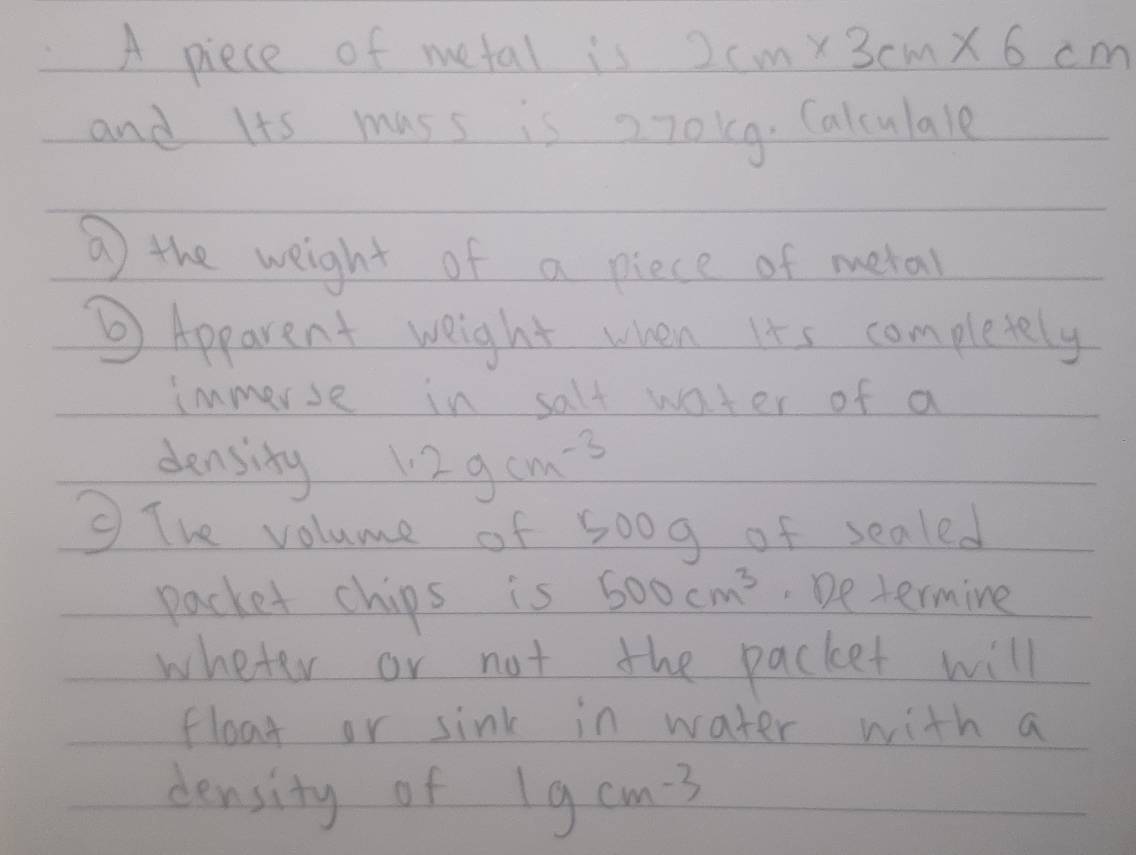 A piece of metal is 2cm x 3cm X 6 cm
and Its mass is 270kg. Calculale
a) the weight of a piece of metal
b) Apparent weight when Its completely
immerse in salt water of a
density 1.2 g cm-3
c) The volume of 500g of sealed
packet chips is 500cm³. Determine
wheter or not the packet will
float or sink in water with a
density of 1g cm-3